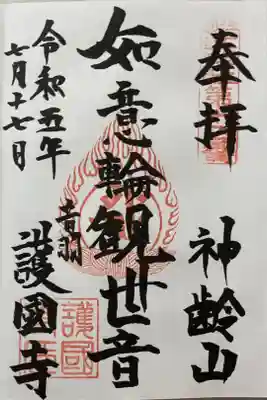 奉拝
神齢山
如意輪観世音
音羽
護國寺
令和五年
七月十七日
護國